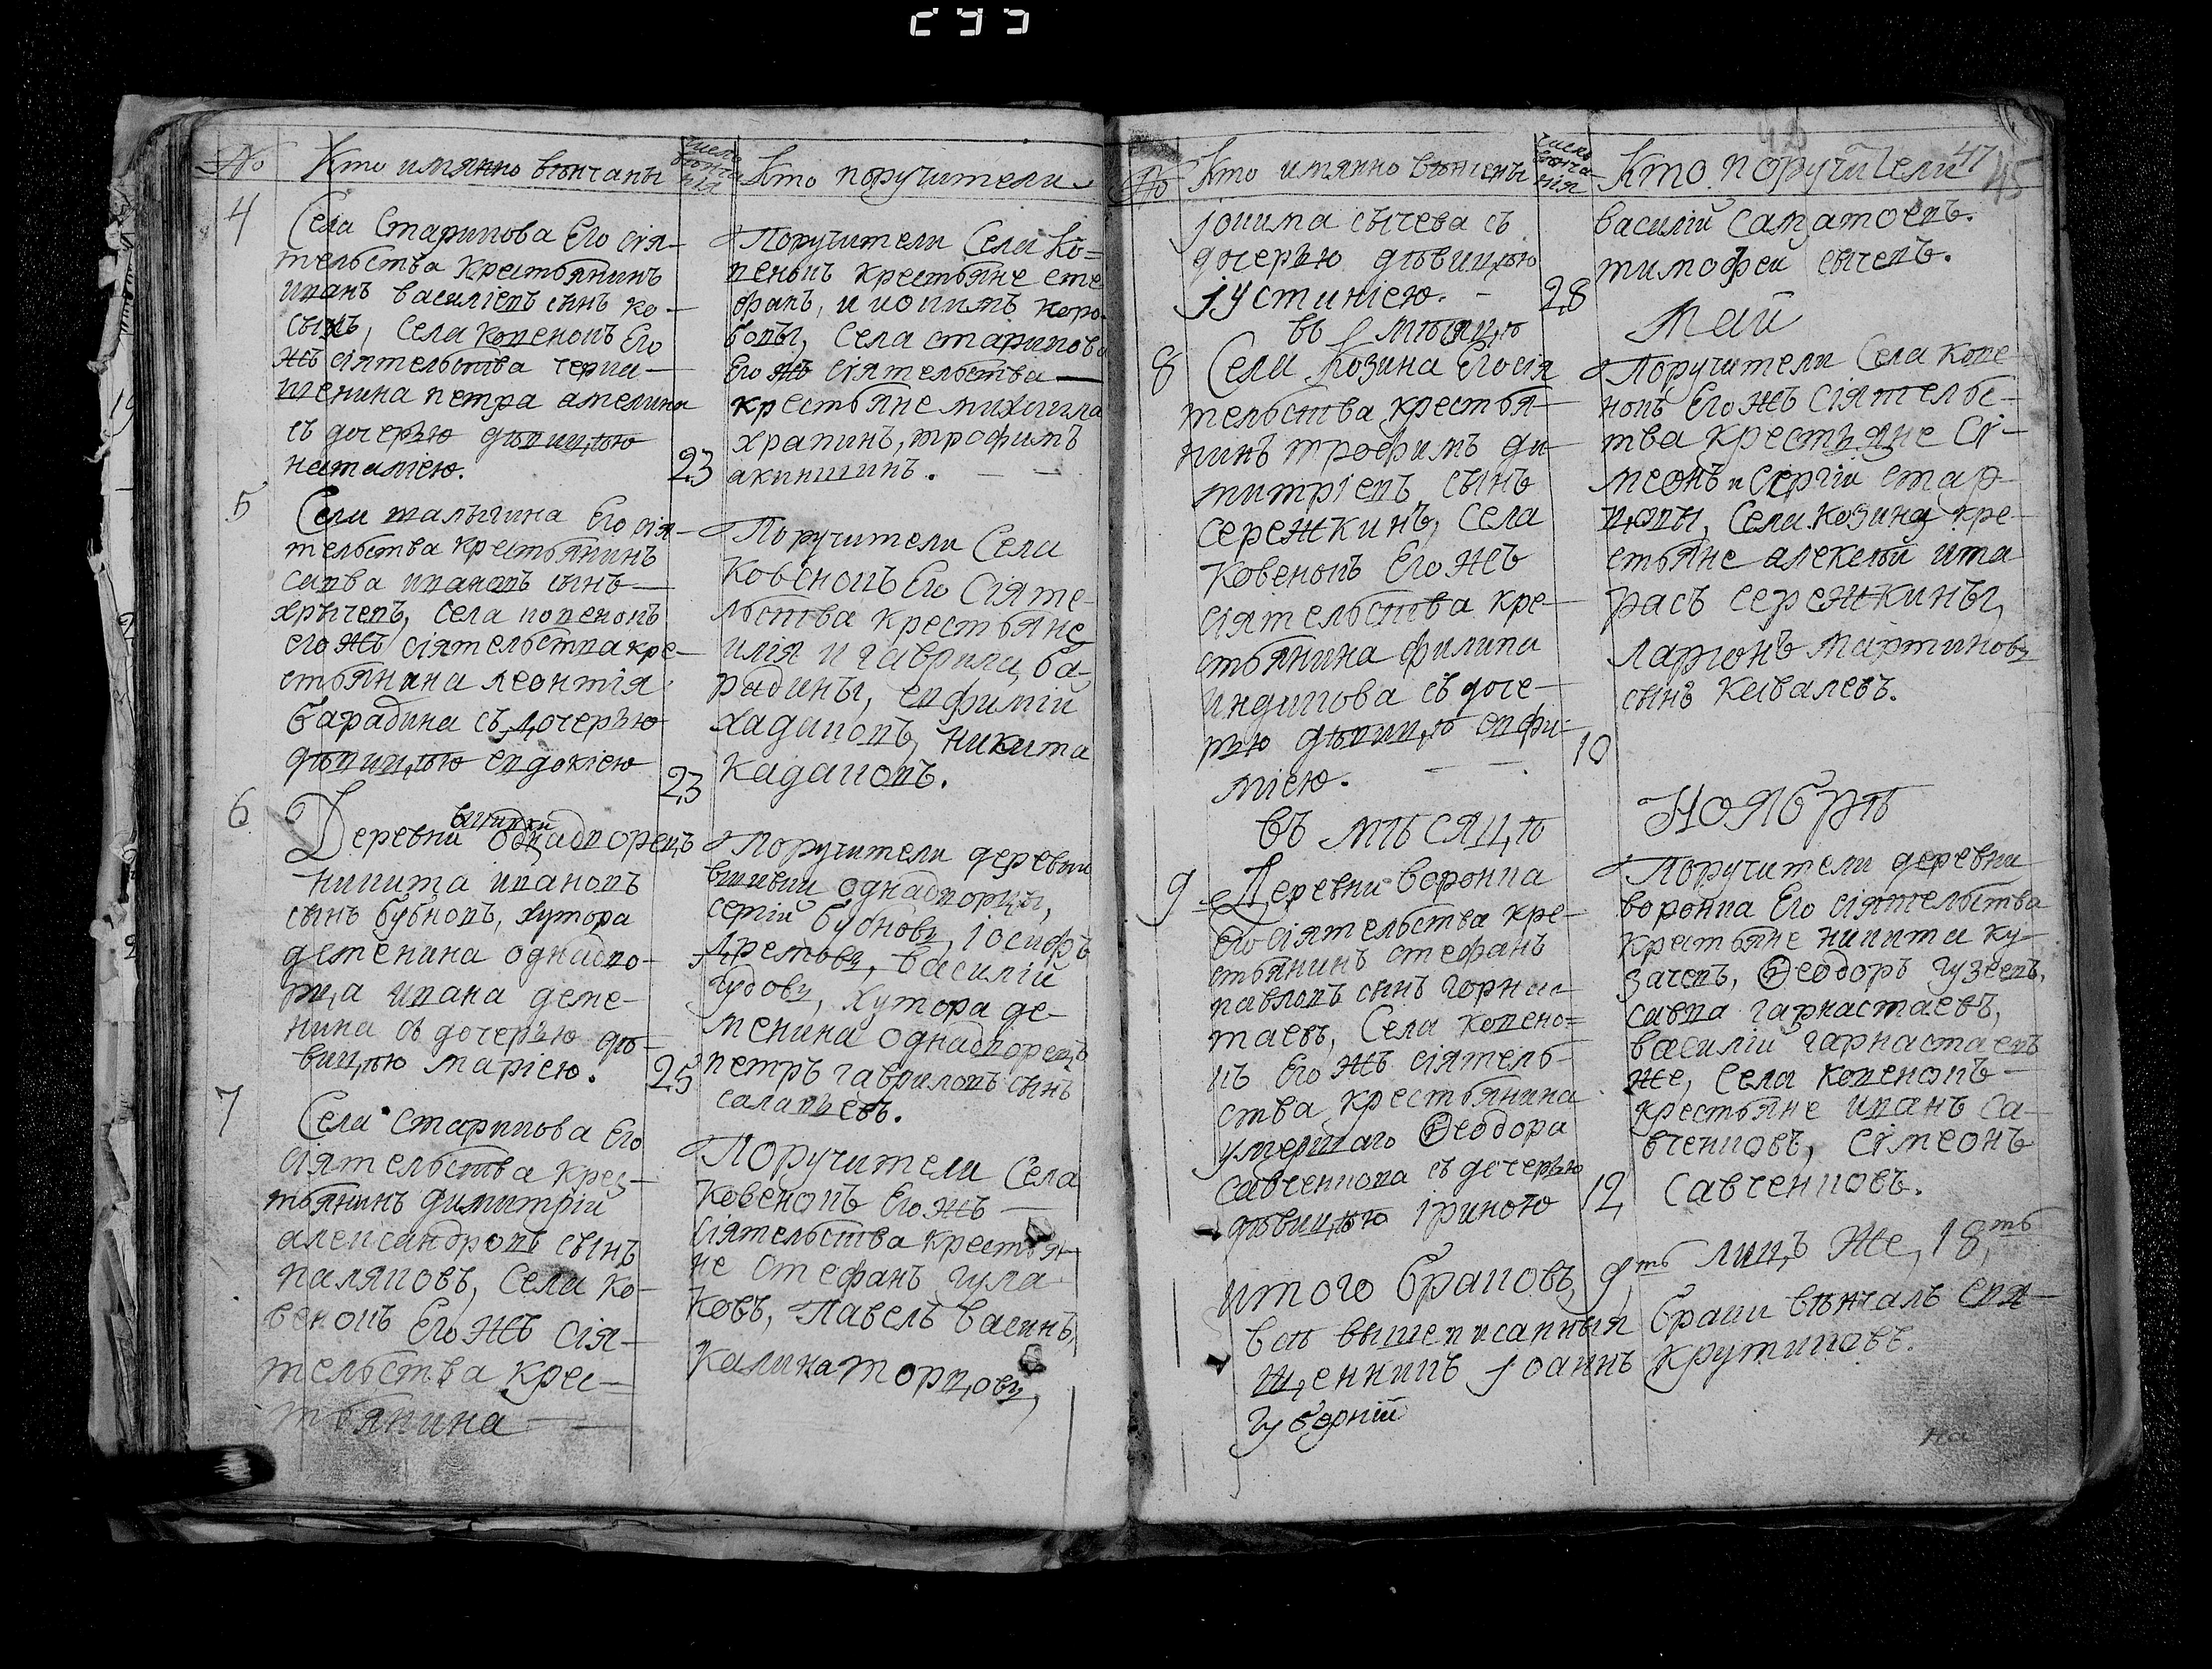 № Кто имянно вѣнчаны
число вѣнчанія
Кто поручители
4
Села Старикова Его сія-
тельства крестьянинъ
иванъ василіевъ сынъ ко-
сыхъ, села ковенокъ Его
жъ сіятельства черка-
шенина петра амелина
съ дочерью дѣвицѣю
наталіею.
23
Поручители Села Ко=
венокъ крестьяне сте
фанъ, и иокимъ коро-
бовы, села старикова
Его жъ сіятельства
крестьяне михаила
храпинъ, трофимъ
акиншинъ.
5
Села малыгина Его сія-
тельства крестьянинъ
савва ивановъ сынъ
хрычевъ, села ковенокъ
его жъ сіятельства кре-
стьянина леонтія
барадина съ дочерью
дѣвицѣю евдокіею
23
Поручители Села
Ковенокъ Его Сіяте-
льства крестьяне
илія и гаврила ба-
радины, евфимій
хадыковъ, никита
кадацковъ.
6
Деревни однадворецъ
никита ивановъ
сынъ бубновъ, хутора
деменина однадво-
рца ивана деме-
нина съ дочерью дѣ-
вицѣю маріею.
25
Поручители деревни
вшивки однадворцы,
сергій бубновъ, іосифъ
Аретовъ, василій
гудовъ, хутора де-
менина однадворецъ
петръ гавриловъ сынъ
салавьевъ.
7
Села Старикова Его
сіятельства крес-
тьянинъ димитрій
александровъ сынъ
паляковъ, Села ко-
венокъ Его жъ сія-
тельства крес=
тьянина
Поручители Села
Ковенокъ Его жъ
сіятельства крестья-
не Стефанъ гула-
ковъ, Павелъ васинъ,
калина торцовъ,
№ Кто имянно вѣнчены
число вѣнчанія
Кто поручители
47
45
іокима сычева съ
дочерью дѣвицѣю
іустиніею.
28
василій саматоевъ.
тимофей сычевъ.
въ мѣсяцѣ
Май
8
Села Козина Его сія
тельства крестья-
нинъ трофимъ ди-
митріевъ сынъ
сережкинъ, села
Ковенокъ Его жъ
сіятельства кре-
стьянина филипа
индикова съ доче-
рью дѣвицѣю евфи-
міею.
10
Поручители Села кове-
нокъ Его жъ Сіятельс-
тва крестьяне Сі-
меонъ и сергій стар-
цовы, села козина кре-
стьяне алексѣй и та
расъ сережкины,
ларіонъ мартиновъ
сынъ кавалевъ.
въ мѣсяцѣ
НОЯБРѢ
9
Деревни воронка
его сіятельства кре-
стьянинъ стефанъ
павловъ сынъ горнас-
таевъ, Села ковено=
къ Его жъ сіятель-
ства крестьянина
умершаго Ѳеодора
савченкова съ дочерью
дѣвицѣю іриною
12
Поручители деревни
воронка Его сіятельства
крестьяне никита ку-
зачевъ, Ѳеодоръ гузеевъ,
савва гарнастаевъ,
василій гарнастаевъ
же, села ковенокъ
крестьяне иванъ са-
вченковъ, сімеонъ
савченковъ.
итого браковъ, 9,ть лицъ же, 18,ть
всѣ вышеписанныя браки вѣнчалъ свя-
щенникъ іоаннъ Крутиковъ.
губерній
на